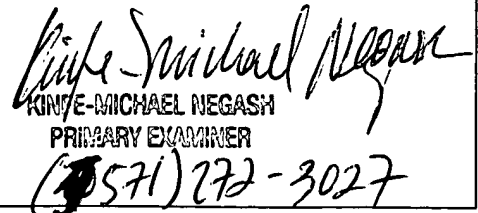 Kinfe-Michael Negash
KINFE-MICHAEL NEGASH
PRIMARY EXAMINER
(571) 272-3027